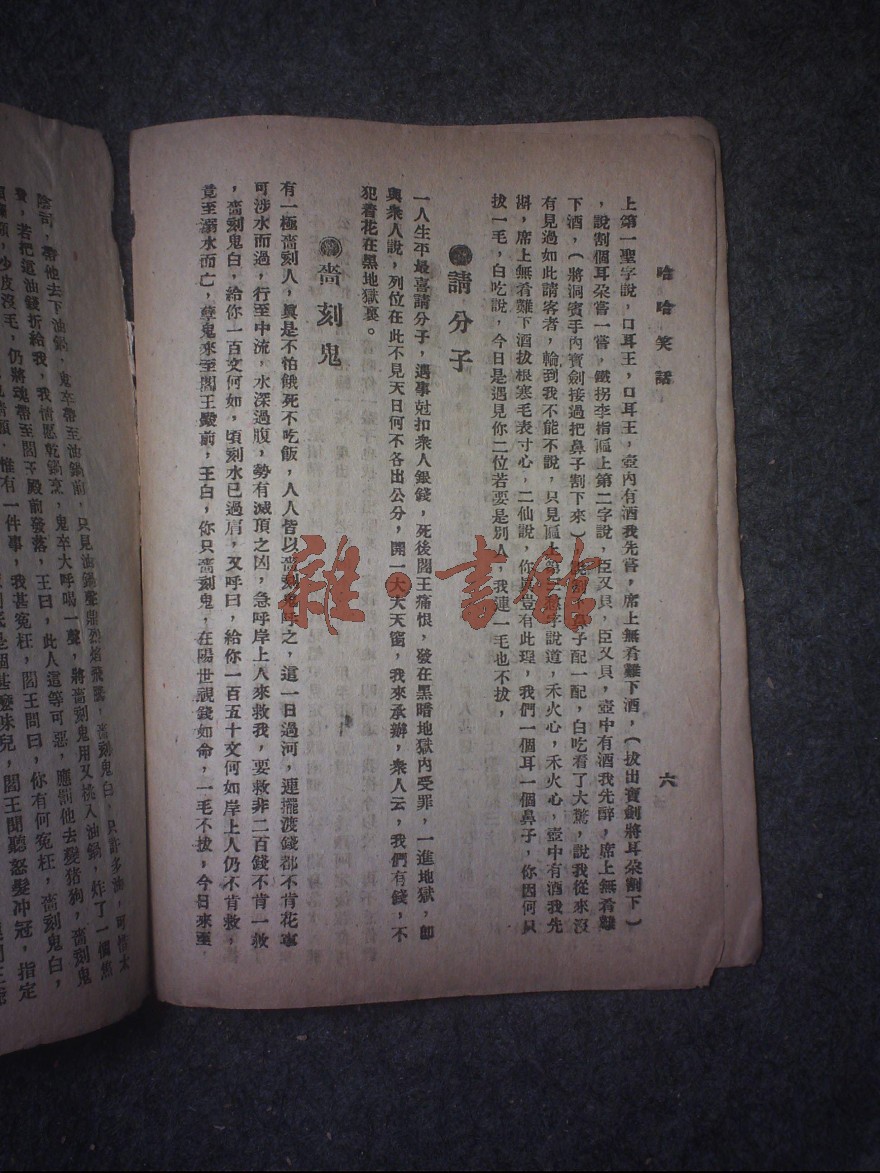 哈哈笑話
六
上第一聖字說，口耳王，口耳王，壺內有酒我先嘗，席上無肴難下酒，（拔出寶劍將耳朵割下）
，說割個耳朵嘗一嘗，鐵拐李指區上第二字說，臣又貝，臣又貝，壺中有酒我先醉，席上無肴難
下酒，（將洞賓手內寶劍接過把鼻子割下來）說割个鼻子配一配，白吃看了大驚，說我從來沒
有見過如此請客者，輪到我不能不說，只見區上第三愁字說道，禾火心，禾火心，壺中有酒我先
斟，席上無肴難下酒拔根寒毛表寸心，二仙說，你豈有此理，我們一個耳一個鼻子，你因何只
拔一毛，白吃說，今日是遇見你二位若要是別人，我連一毛也不拔，
請分子
一人生平最喜請分子，遇事尅扣衆人銀錢，死後閻王痛恨，發在黑暗地獄內受罪，一進地獄，卽
與衆人說，列位在此不見天日何不各出公分，開一大大天窗，我來承辦，衆人云，我們有錢，不
犯着花在黑地獄裏。
嗇刻鬼
有一極嗇刻人，眞是不怕餓死不吃飯，人人皆以嗇刻鬼呼之，這一日過河，連擺渡錢都不肯花寧
可涉水而過，行至中流，水深過腹，勢有滅頂之凶，急呼岸上人來救我，要救非二百錢不肯一救
，嗇刻鬼白，給你一百文何如，頃刻水已過肩，又呼曰，給你一百五十文何如岸上人仍不肯救，
竟至溺水而亡，孽鬼來至閻王殿前，王白，你只嗇刻鬼，在陽世視錢如命，一毛不拔，今日來至
陰司，帶他去下油鍋，鬼卒帶至油鍋前，只見油鍋聲鼎烈焰飛騰，嗇刻鬼白，只許多油，可惜太
費，若把這油錢折給我，我情愿乾鍋烹，鬼卒大呼喝一聲，將嗇刻鬼用叉桃入油鍋，炸了一個焦
少皮沒毛，仍將魂帶至閻王殿前發落，王曰，此人這等可惡，應罰他去變猪狗，嗇刻鬼
惟有一件事，我甚冤枉，閻王問曰，你有何冤枉，嗇刻鬼白，
是個甚麼味兒，閻王聞聽怒髮冲冠，指定
雜·書館